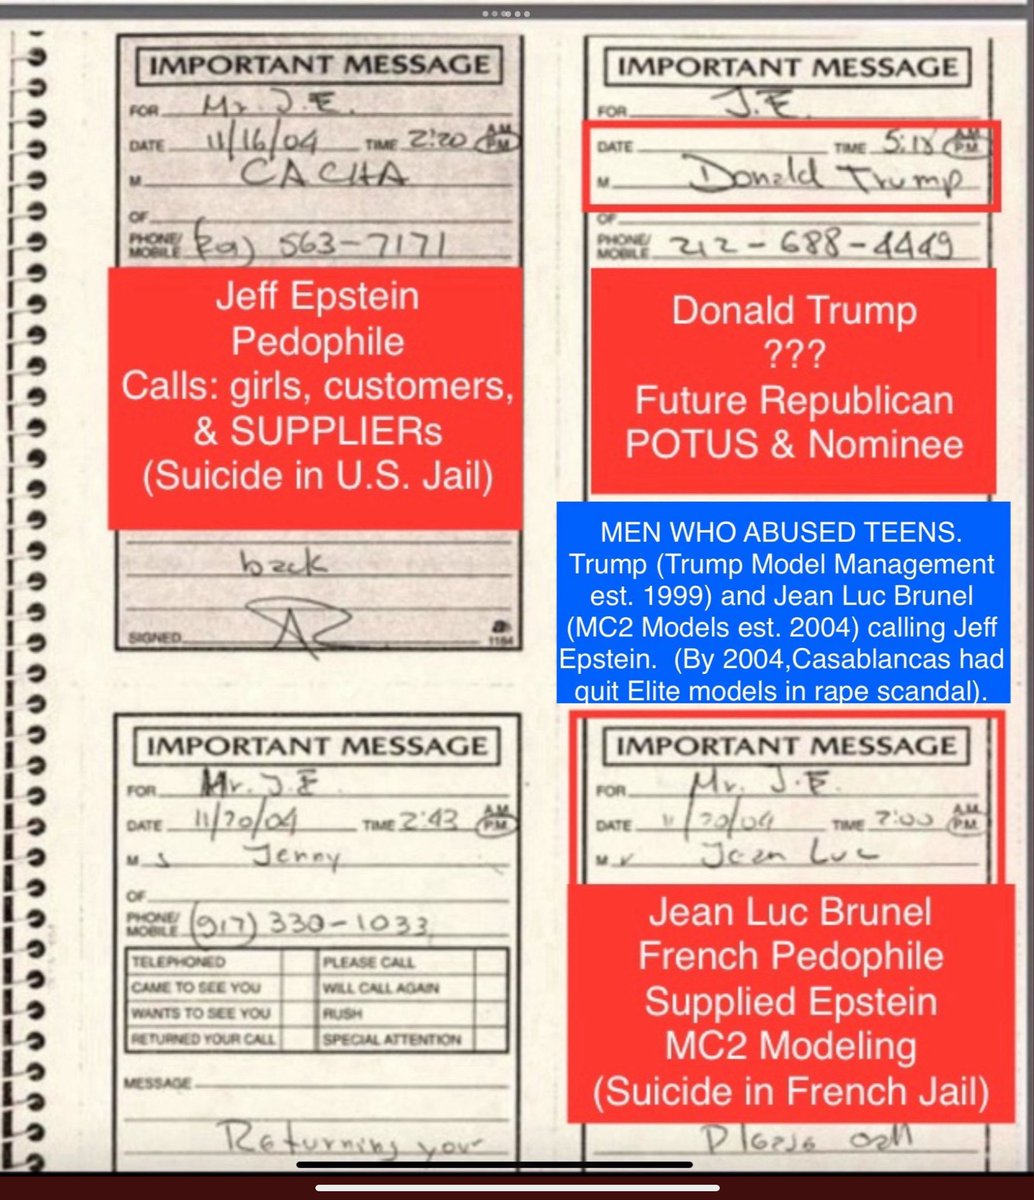 IMPORTANT MESSAGE
FOR Mr. J.E.
DATE 11/16/04 TIME 2:20 A.M. P.M.
M CACHA
OF
PHONE/MOBILE 563-7171
Jeff Epstein
Pedophile
Calls: girls, customers,
& SUPPLIERs
(Suicide in U.S. Jail)
back
SIGNED 1184
IMPORTANT MESSAGE
FOR J.E.
DATE TIME 5:18 A.M. P.M.
M Donald Trump
OF
PHONE/MOBILE 212-688-4449
Donald Trump
???
Future Republican
POTUS & Nominee
MEN WHO ABUSED TEENS.
Trump (Trump Model Management
est. 1999) and Jean Luc Brunel
(MC2 Models est. 2004) calling Jeff
Epstein. (By 2004,Casablancas had
quit Elite models in rape scandal).
IMPORTANT MESSAGE
FOR Mr. J.E
DATE 11/20/04 TIME 2:43 A.M. P.M.
M s Jenny
OF
PHONE/MOBILE (917) 330-1033
TELEPHONED PLEASE CALL
CAME TO SEE YOU WILL CALL AGAIN
WANTS TO SEE YOU RUSH
RETURNED YOUR CALL SPECIAL ATTENTION
MESSAGE
Returning your
IMPORTANT MESSAGE
FOR Mr. J.E.
DATE 11/20/04 TIME 2:00 A.M. P.M.
M r Jean Luc
Jean Luc Brunel
French Pedophile
Supplied Epstein
MC2 Modeling
(Suicide in French Jail)
Please call